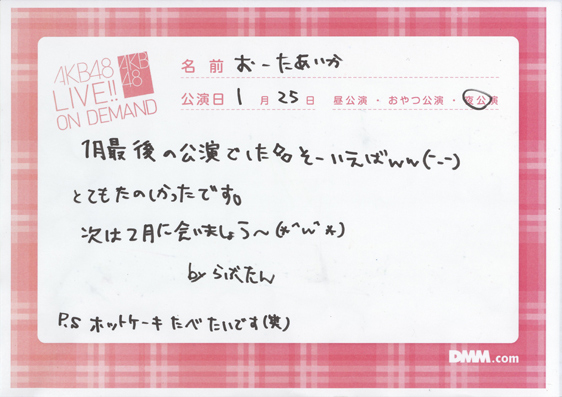 AKB48
LIVE!!
ON DEMAND
AKB
48
名前 おーたあいか
公演日 1月25日 昼公演・おやつ公演・夜公演
1月最後の公演でした そーいえばww(-_-)
とてもたのしかったです。
次は2月に会いましょう〜(*^ω^*)
by らぶたん
P.S ホットケーキたべたいです(笑)
DMM.com